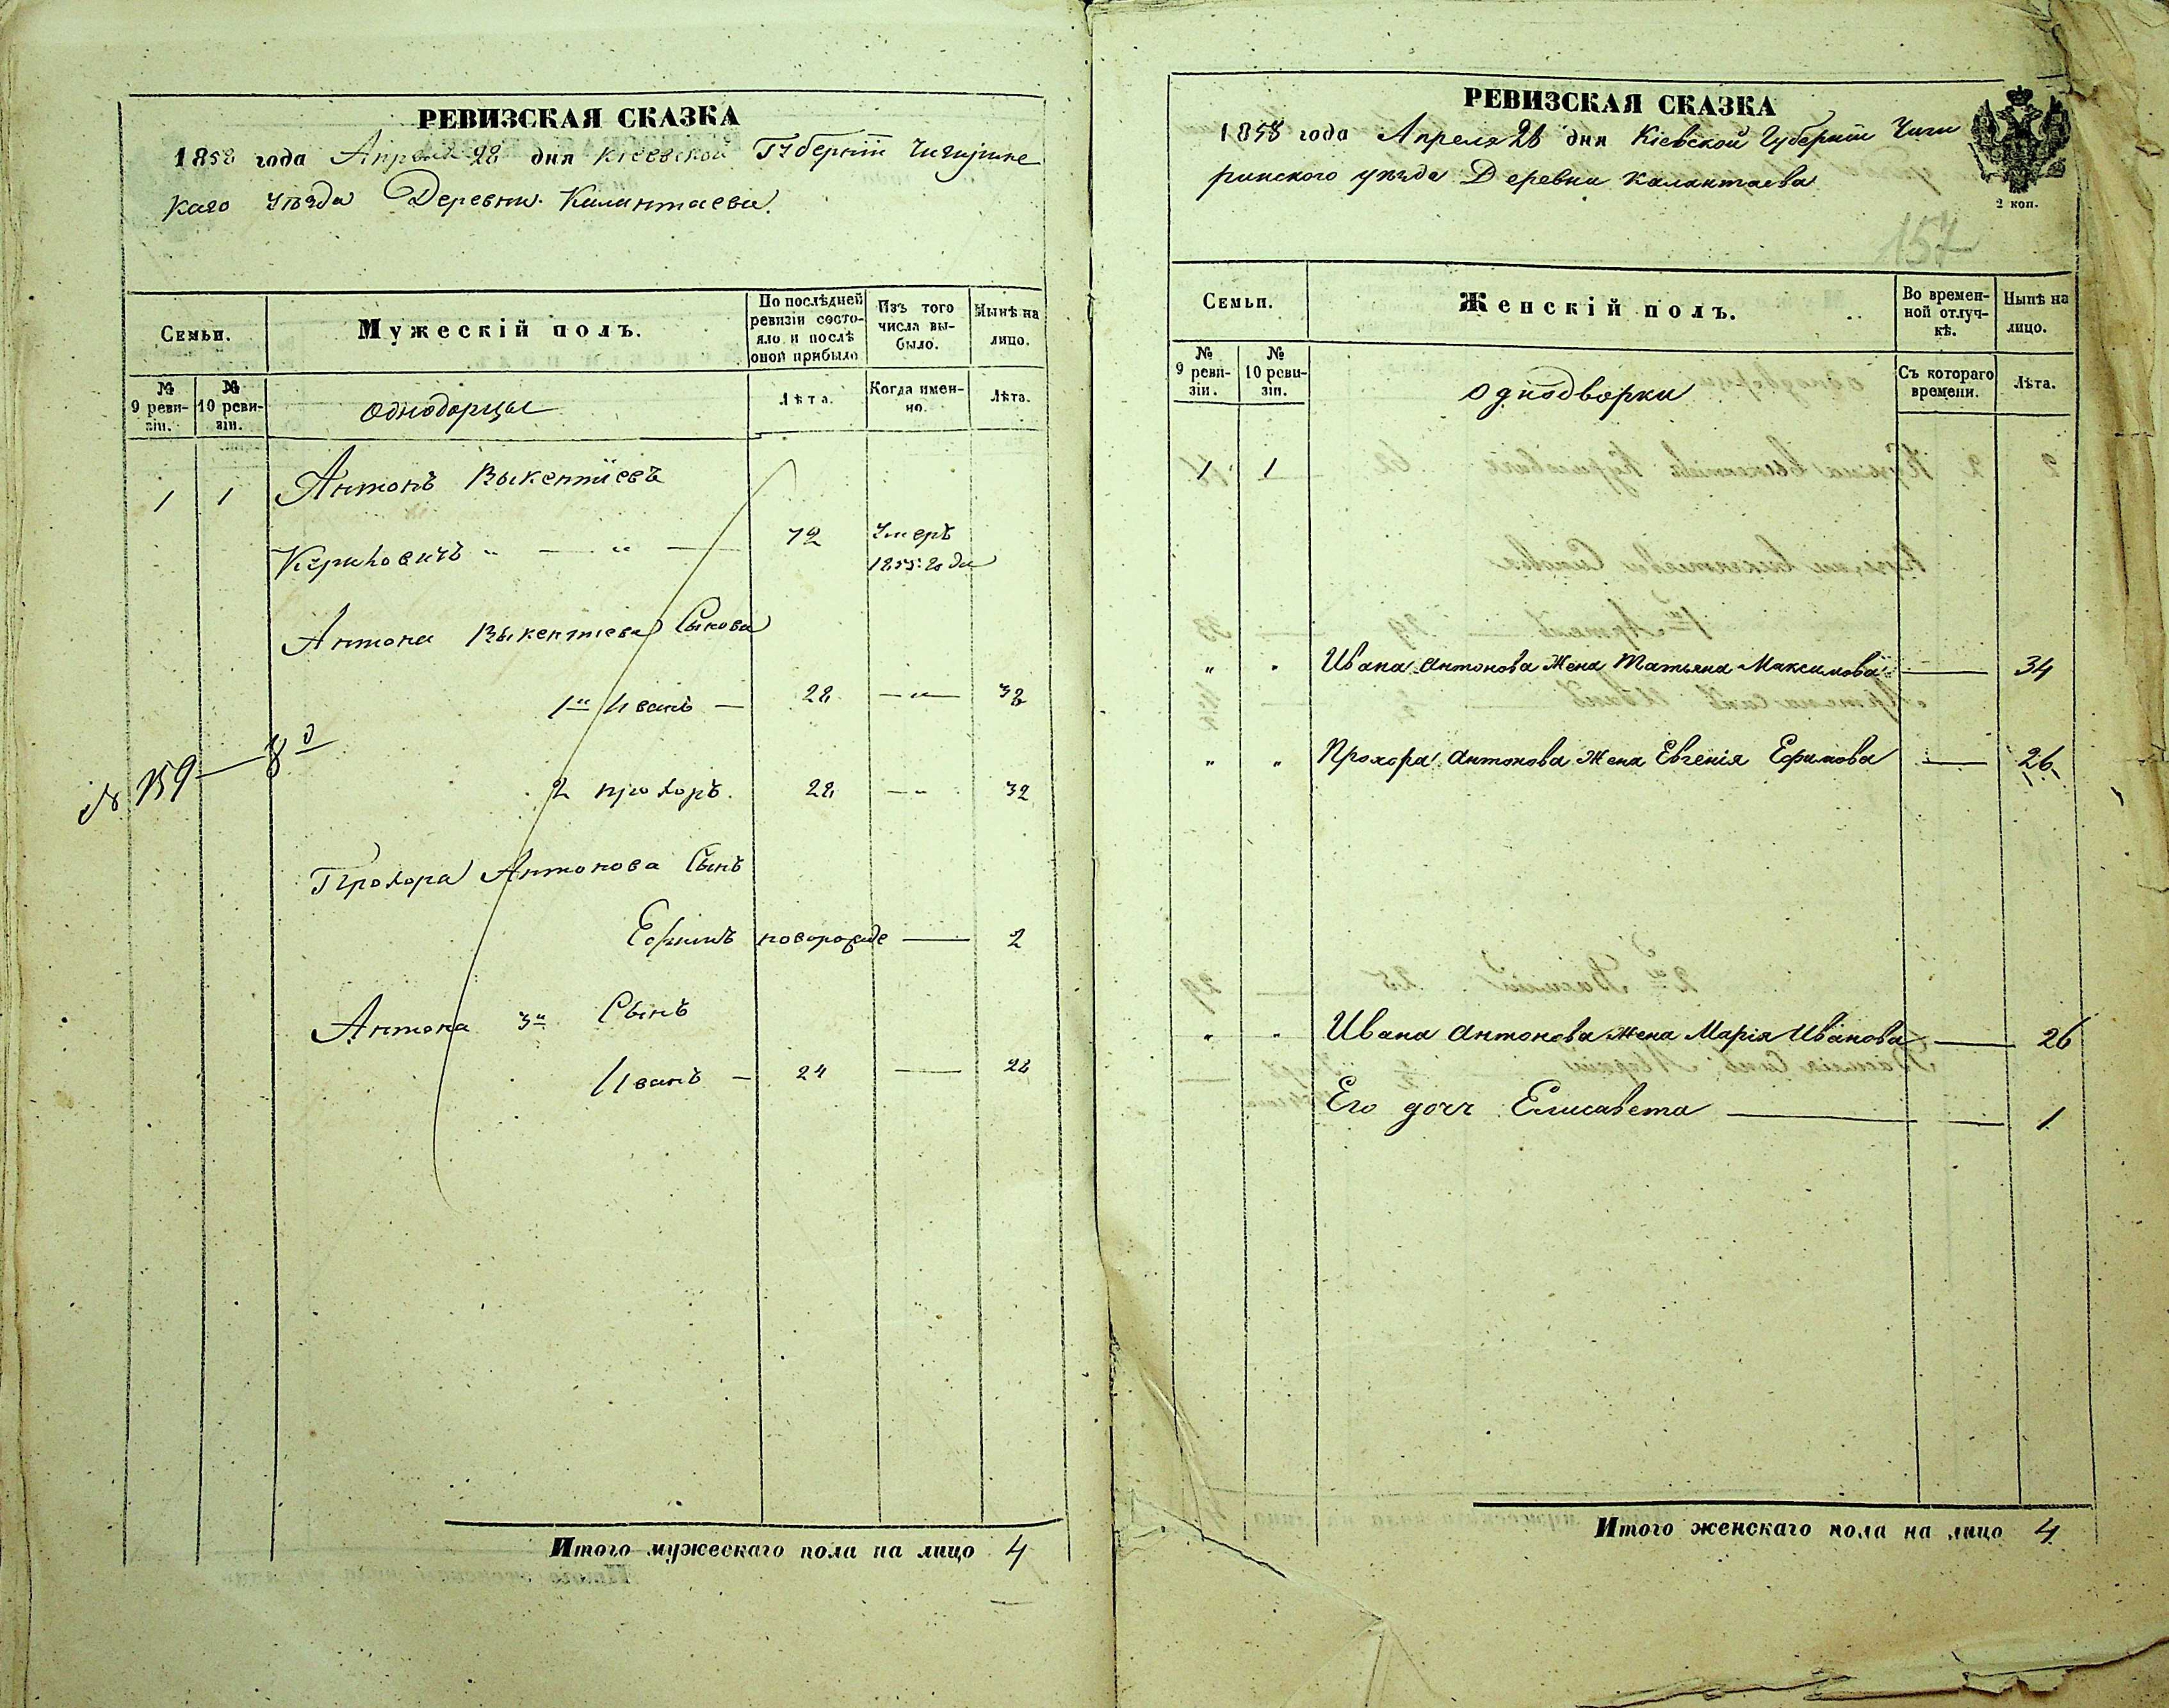 РЕВИЗСКАЯ СКАЗКА
1858 года Апреля 28 дня Кіевской Губерніи Чигирине
каго Уѣзда Деревни Калантаева.
Семьи.
Мужескій полъ.
По послѣдней ревизіи состояло и послѣ оной прибыло
Изъ того числа выбыло.
Нынѣ на лицо.
№ 9 ревизіи.
№ 10 ревизіи.
однодорцы
Лѣта.
Когда именно.
Лѣта.
1 1 Антонъ Выкентіевъ
72 Умеръ
1855 года
Антона Выкентіева Сынова
1й Иванъ — 28 — „ — 32
2 прохоръ. 28 — „ 32
Прохора Антонова Сынъ
Ефимъ новорожде — 2
Антона 3й Сынъ
Иванъ — 24 — 28
Итого мужескаго пола на лицо 4
РЕВИЗСКАЯ СКАЗКА
1858 года Апреля 28 дня Кіевской Губерніи Чиги
ринского уѣзда Деревни Калантаева
2 коп.
157
Семьи.
Женскій полъ.
Во временной отлучкѣ.
Нынѣ на лицо.
№ 9 ревизіи.
№ 10 ревизіи.
однодворки
Съ котораго времени.
Лѣта.
1 1
„ „ Ивана Антонова Жена Татьяна Максимова — 34
„ „ Прохора Антонова Жена Евгенія Ефимова — 26
„ „ Ивана Антонова Жена Марія Иванова — 26
Его дочь Елисавета — 1
Итого женскаго пола на лицо 4